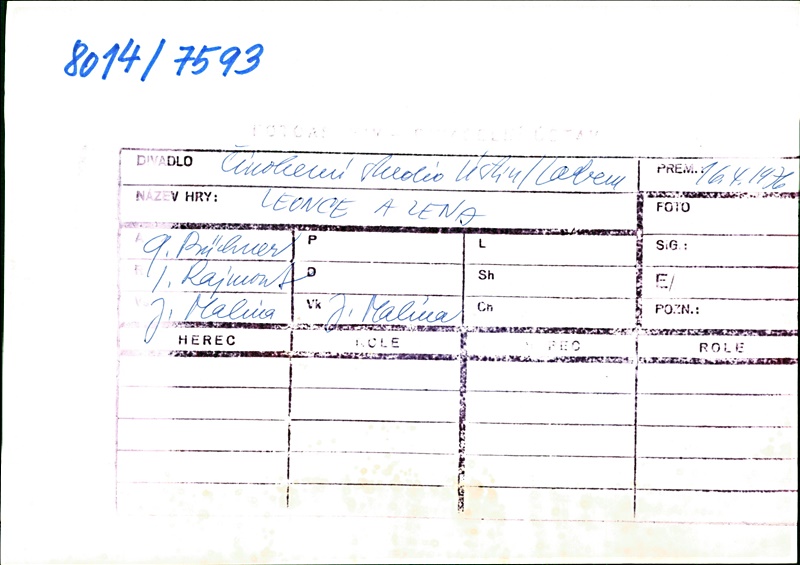 8014/7593
DIVADLO Činoherní studio Ústí n/Labem PREM.: 16.4.1976
NÁZEV HRY: LEONCE A LENA FOTO
G. Büchner P L SIG.:
I. Rajmont D Sh E/
J. Malina Vk J. Malina Ch POZN.:
HEREC ROLE HEREC ROLE